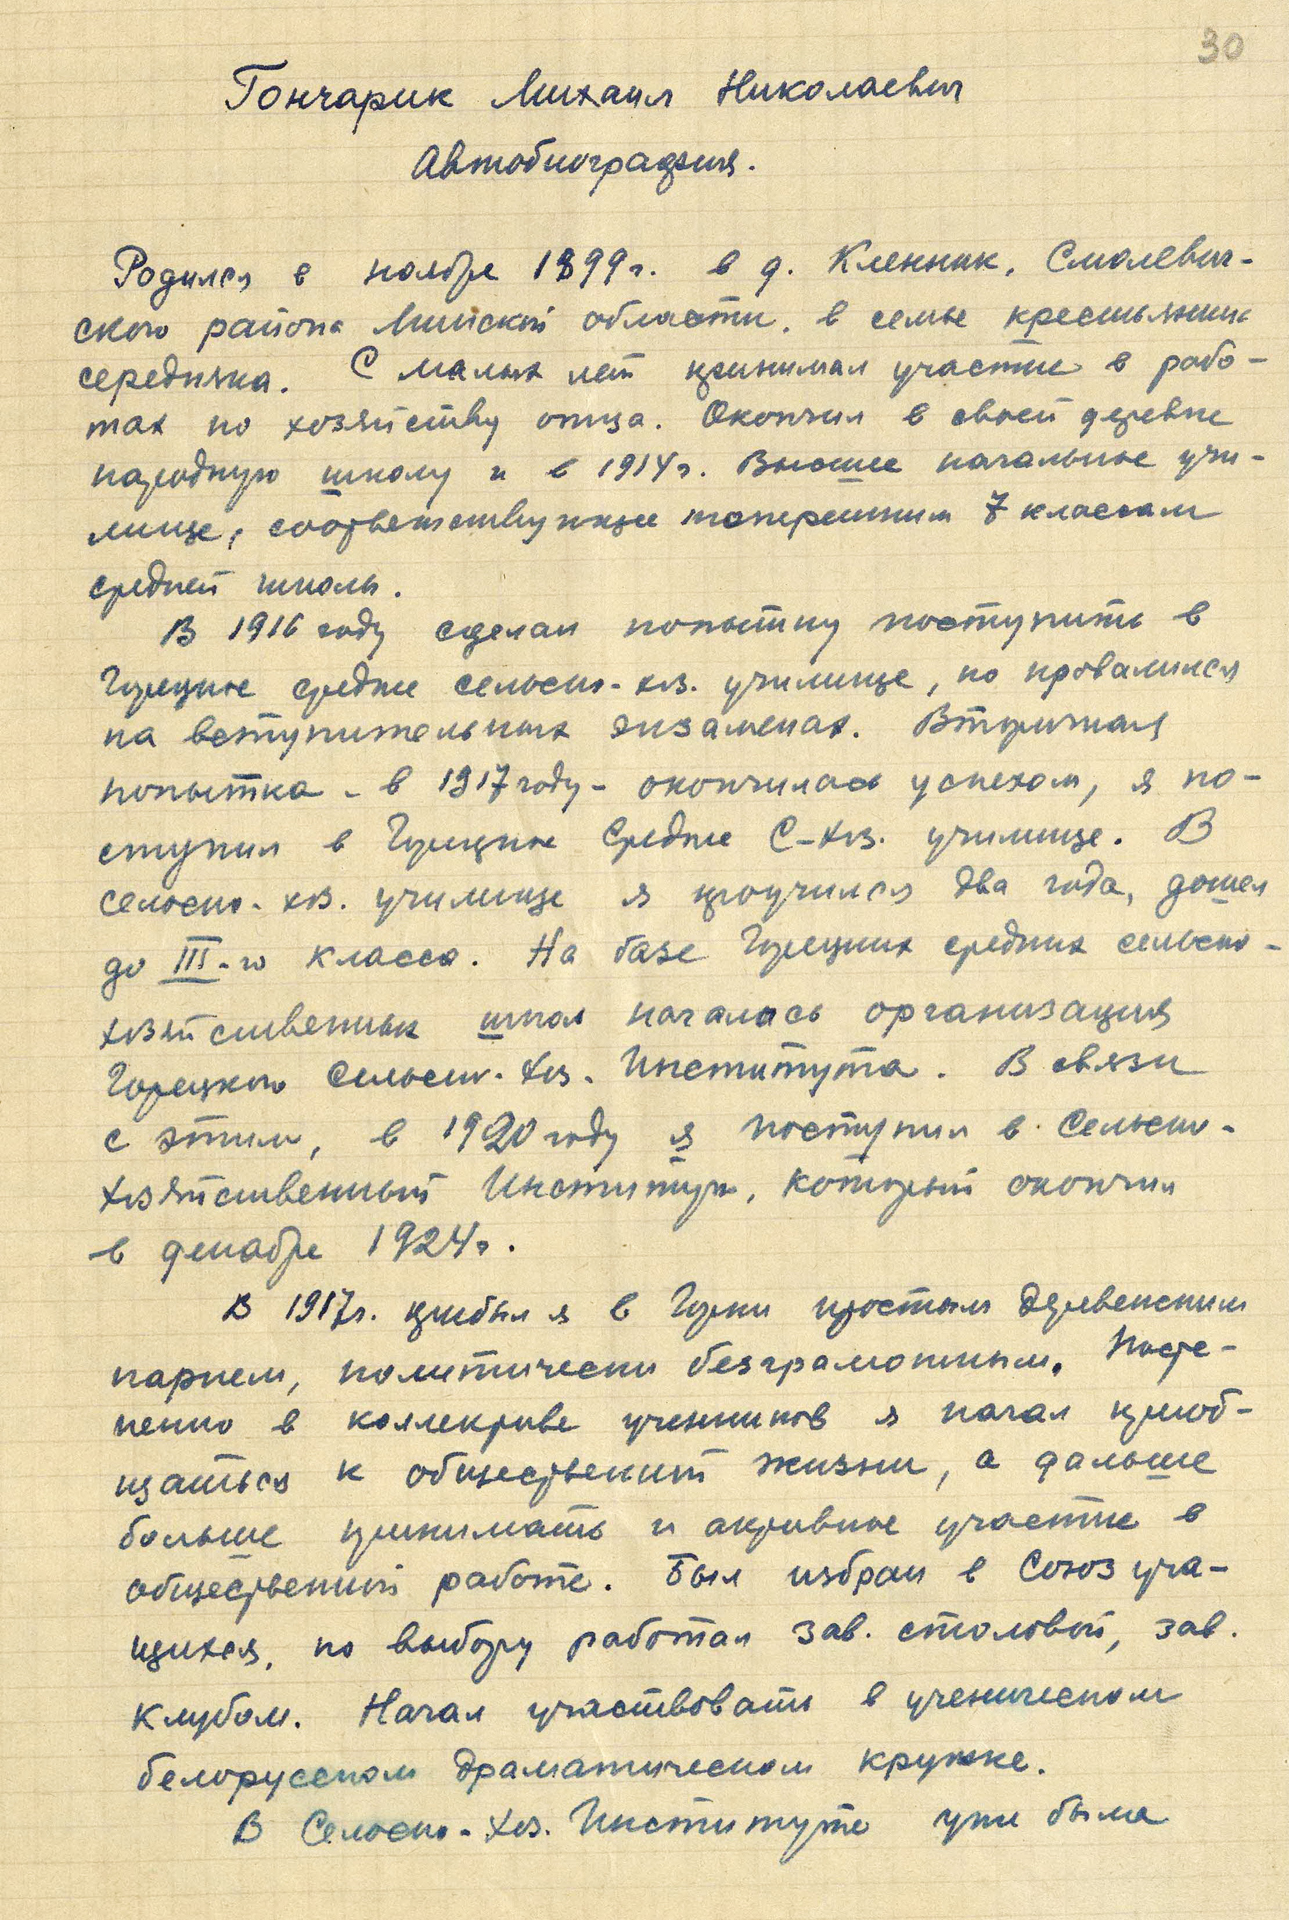 30
Гончарик Михаил Николаевич
Автобиография.
Родился в ноябре 1899г. в д. Кленник, Смолевич-
ского района Минской области, в семье крестьянина
середняка. С малых лет принимал участие в рабо-
тах по хозяйству отца. Окончил в своей деревне
народную школу и в 1914г. Высшее начальное учи-
лище, соответствующее теперешним 7 классам
средней школы.
В 1916 году сделал попытку поступить в
Горецкое среднее сельско-хоз. училище, но провалился
на вступительных экзаменах. Вторичная
попытка - в 1917 году - окончилась успехом, я по-
ступил в Горецкое Среднее С-хоз. училище. В
сельско-хоз. училище я проучился два года, дошел
до III-го класса. На базе Горецких средних сельско-
хозяйственных школ началась организация
Горецкого Сельско-хоз. Института. В связи
с этим, в 1920 году я поступил в Сельско-
хозяйственный Институт, который окончил
в декабре 1924г.
В 1917г. прибыл я в Горки простым деревенским
парнем, политически безграмотным. Посте-
пенно в коллективе учеников я начал приоб-
щаться к общественной жизни, а дальше
больше принимать и активное участие в
общественной работе. Был избран в Союз уча-
щихся, по выбору работал зав. столовой, зав.
клубом. Начал участвовать в ученическом
белорусском драматическом кружке.
В Сельско-хоз. Институте уже была